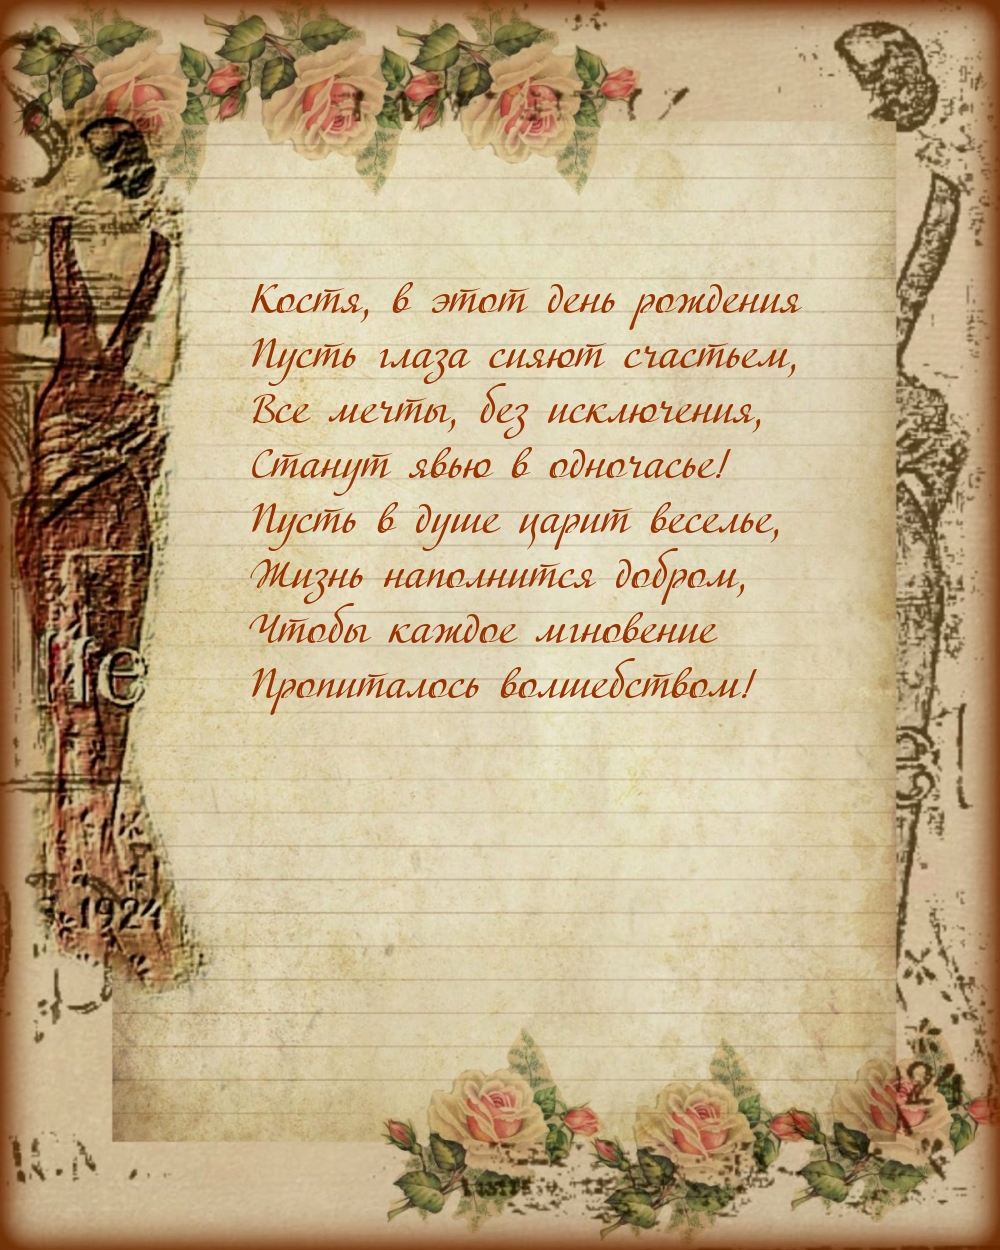 Костя, в этот день рождения
Пусть глаза сияют счастьем,
Все мечты, без исключения,
Станут явью в одночасье!
Пусть в душе царит веселье,
Жизнь наполнится добром,
Чтобы каждое мгновение
Пропиталось волшебством!
1924